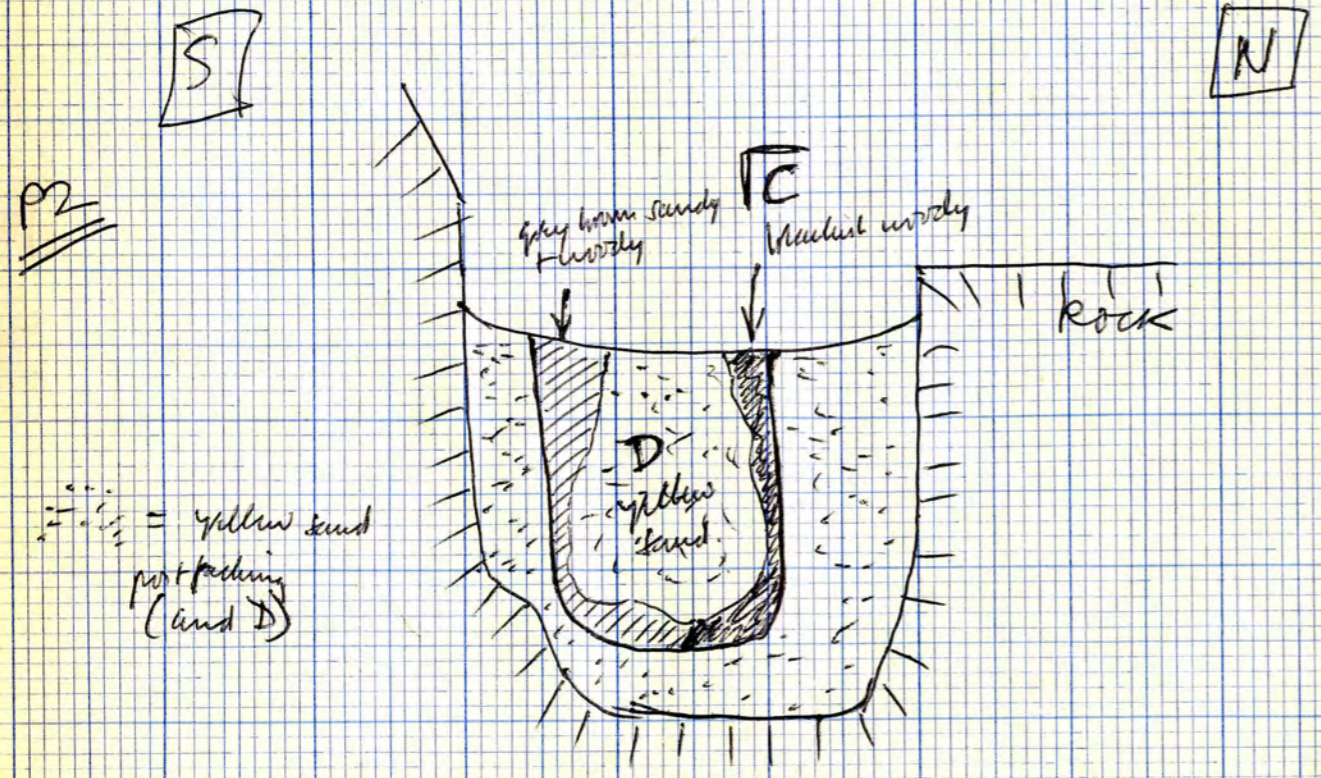 S
N
P2
C
grey brown sandy
+ woody
blackish woody
Rock
D
yellow
sand
= yellow sand
post packing
(and D)